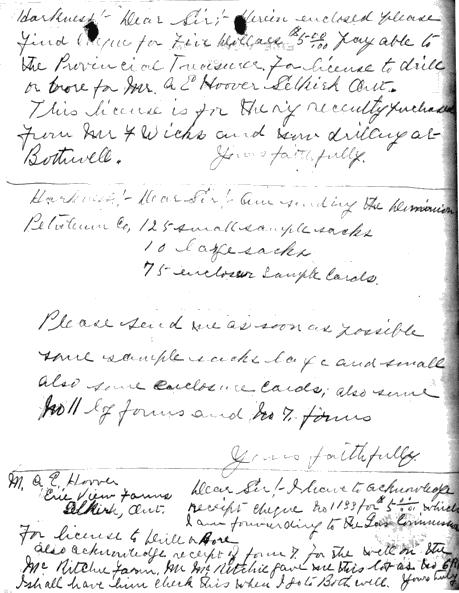 Harkness!- Dear Sir;- Herein enclosed please
find cheque for Five Dollars $5 00/100 payable to
the Provincial Treasurer for license to drill
or bore for Mr. A E Hoover Selkirk Ont.
This license is for the rig recently purchased
from Mr F Wicks and now drilling at
Bothwell. Yours faithfully.
Harkness!- Dear Sir!- Am sending the Dominion
Petroleum Co, 125 small sample sacks
10 large sacks
75 enclosure Sample Cards.
Please send me as soon as possible
some sample sacks large and small
also some enclosure cards, also some
No 11 forms and No 7. forms
Yours faithfully
M. A E. Hoover
Erie View Farms
Selkirk, Ont.
Dear Sir!- I have to acknowledge
receipt cheque No 1199 for $5 00/100 which
I am forwarding to the Gas Commissioner
For license to Drill or Bore
also acknowledge receipt of form 7. for the well on the
Mc Ritchie Farm. Mr Mc Ritchie gave me this lot as No 6
I shall have him check this when I go to Bothwell. Yours truly